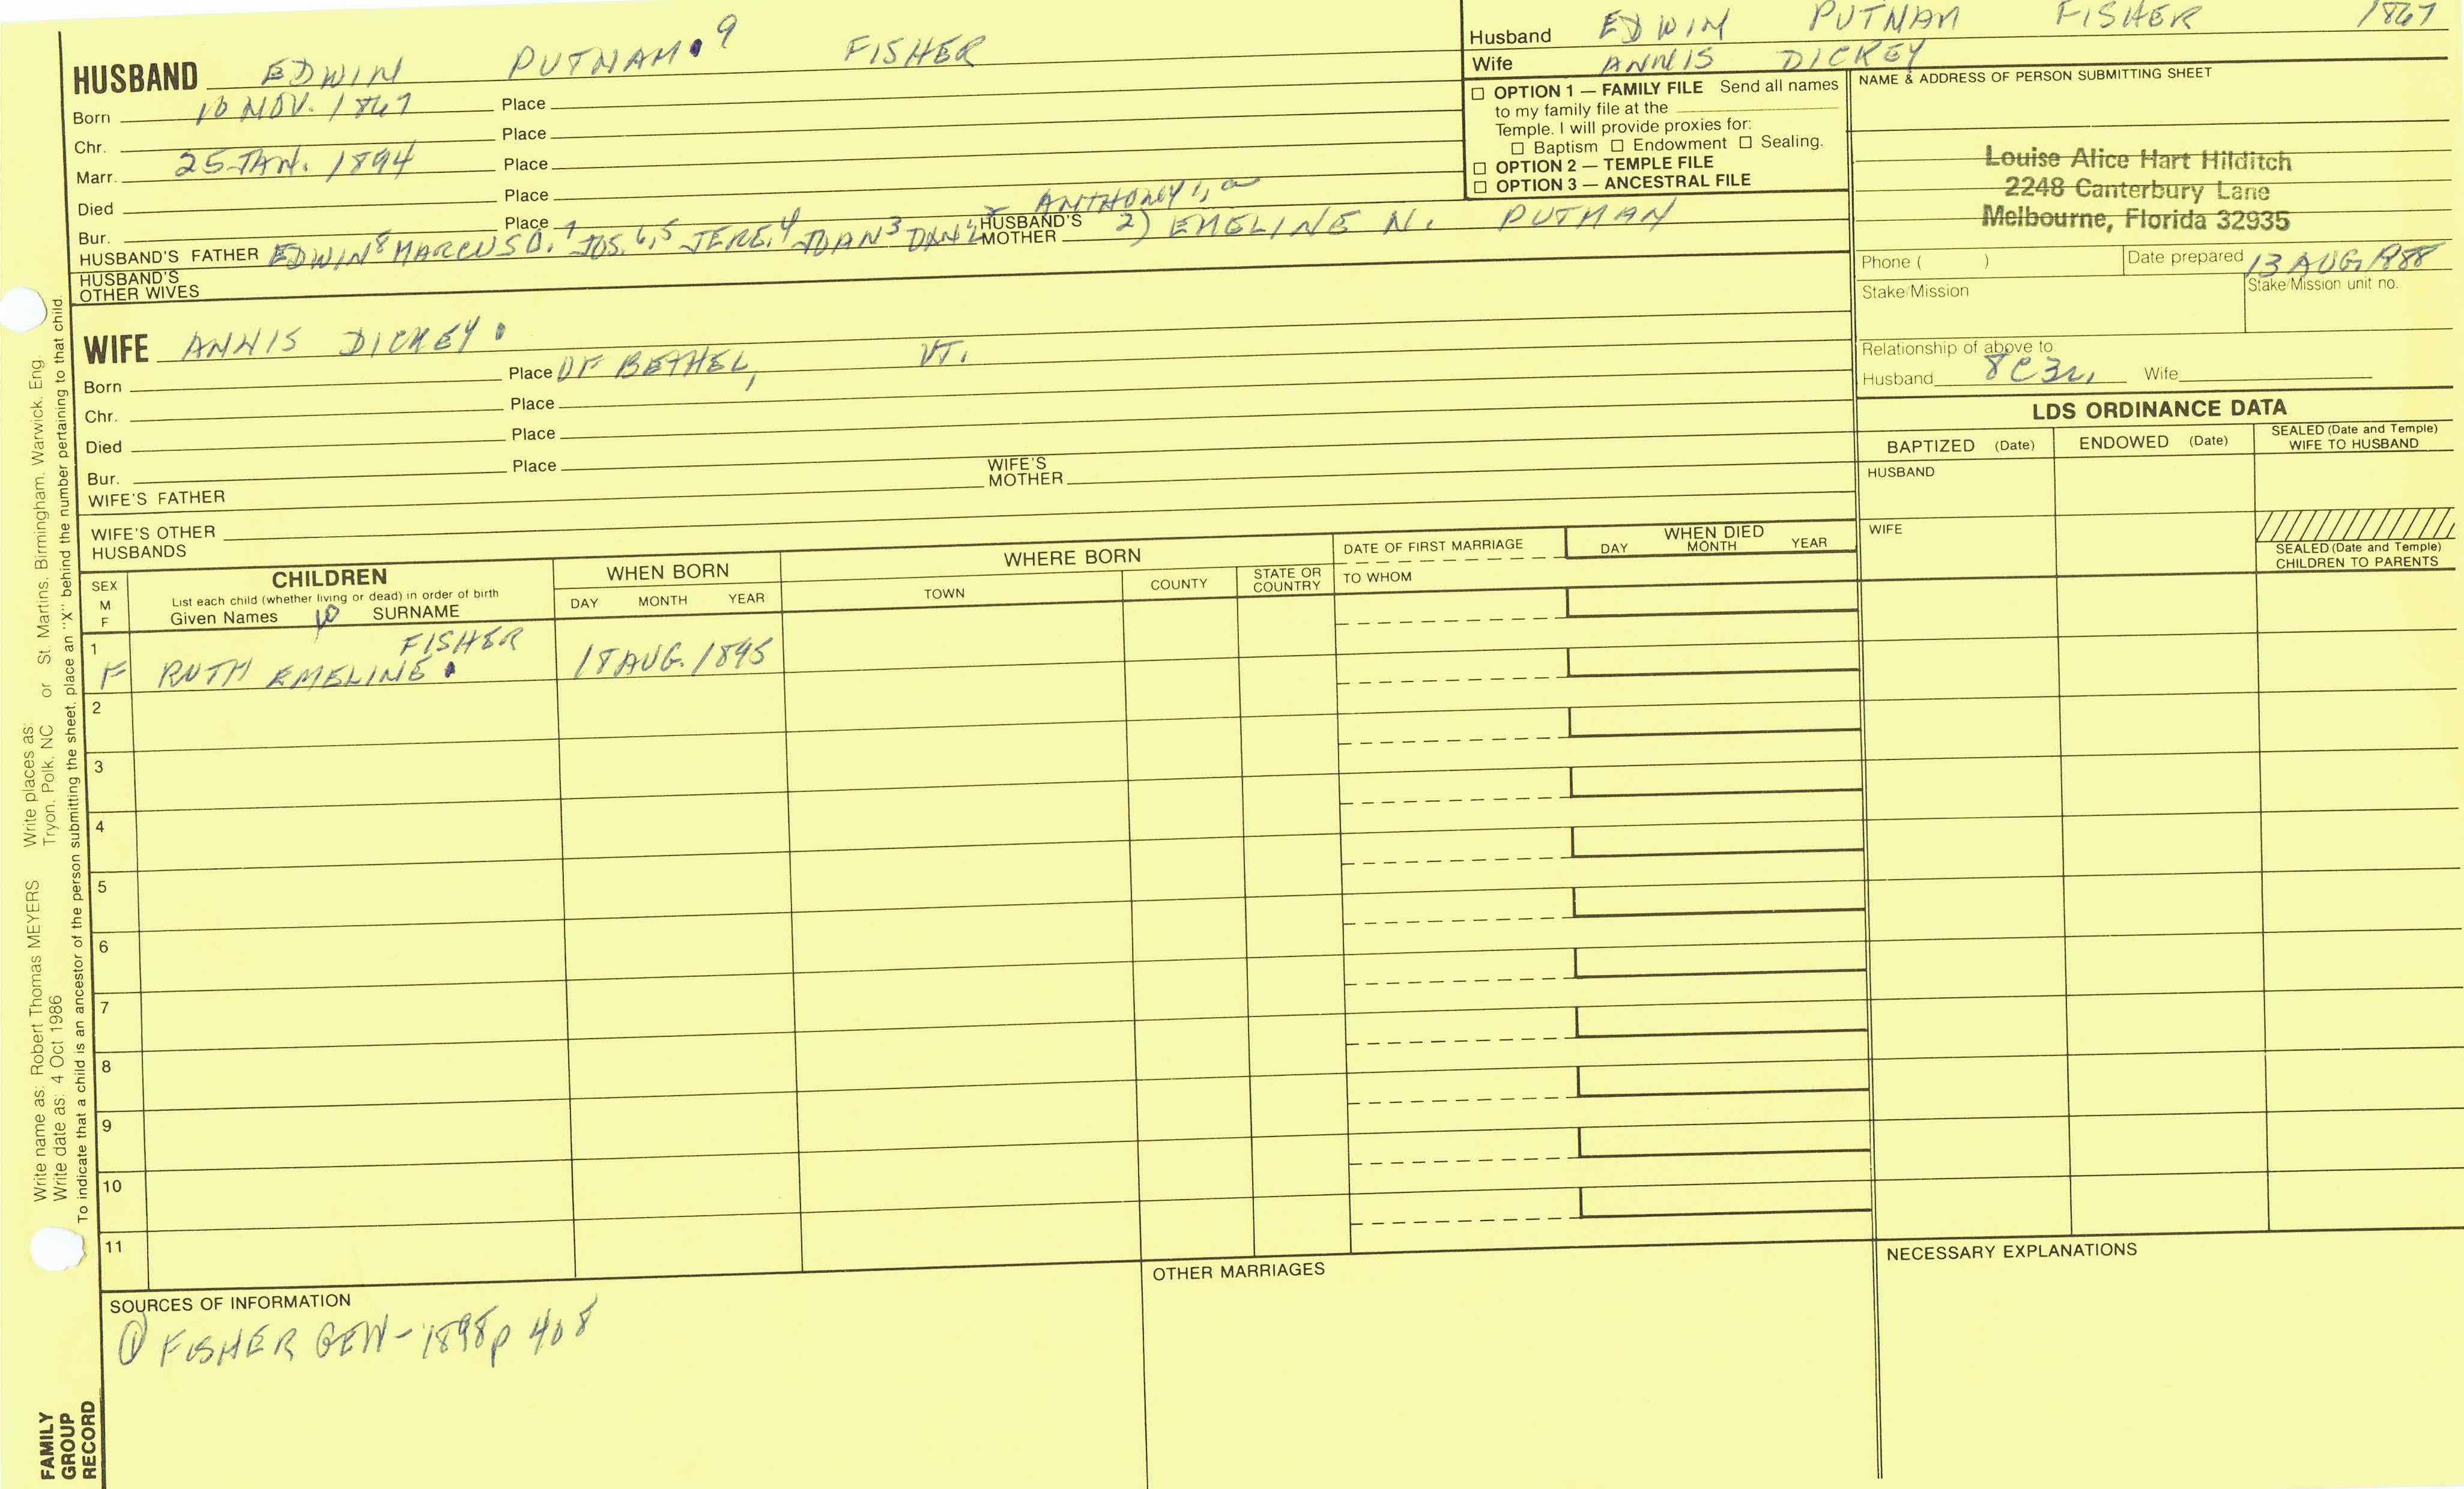 HUSBAND EDWIN PUTNAM 9 FISHER
Born 10 NOV. 1867 Place
Chr. Place
Marr. 25 JAN. 1894 Place
Died Place
Bur. Place
ANTHONY 1,
HUSBAND'S FATHER EDWIN 8 MARCUS D. 7 JOS. 6,5 JERE, 4 3 DAN'L 2 HUSBAND'S MOTHER 2) EMELINE N. PUTMAN
HUSBAND'S OTHER WIVES
Husband EDWIN PUTNAM FISHER 1867
Wife ANNIS DICKEY
☐ OPTION 1 — FAMILY FILE Send all names
to my family file at the
Temple. I will provide proxies for:
☐ Baptism ☐ Endowment ☐ Sealing.
☐ OPTION 2 — TEMPLE FILE
☐ OPTION 3 — ANCESTRAL FILE
NAME & ADDRESS OF PERSON SUBMITTING SHEET
Louise Alice Hart Hilditch
2248 Canterbury Lane
Melbourne, Florida 32935
Phone ( ) Date prepared 13 AUG 1988
Stake/Mission Stake/Mission unit no.
Relationship of above to:
Husband 8C3R, Wife
WIFE ANNIS DICKEY.
Born Place OF BETHEL, VT.
Chr. Place
Died Place
Bur. Place
WIFE'S FATHER WIFE'S MOTHER
WIFE'S OTHER HUSBANDS
LDS ORDINANCE DATA
BAPTIZED (Date) ENDOWED (Date) SEALED (Date and Temple) WIFE TO HUSBAND
HUSBAND
WIFE
SEALED (Date and Temple) CHILDREN TO PARENTS
SEX M F
CHILDREN
List each child (whether living or dead) in order of birth
Given Names 10 SURNAME
WHEN BORN
DAY MONTH YEAR
WHERE BORN
TOWN COUNTY STATE OR COUNTRY
DATE OF FIRST MARRIAGE
TO WHOM
WHEN DIED
DAY MONTH YEAR
1 FISHER
F RUTH EMELINE. 18 AUG. 1895
2
3
4
5
6
7
8
9
10
11
SOURCES OF INFORMATION
① FISHER GEN - 1898 p 408
OTHER MARRIAGES
NECESSARY EXPLANATIONS
FAMILY GROUP RECORD
Write name as: Robert Thomas MEYERS Write places as:
Write date as: 4 Oct 1986 Tryon, Polk, NC or St. Martins, Birmingham, Warwick, Eng.
To indicate that a child is an ancestor of the person submitting the sheet, place an "X" behind the number pertaining to that child.